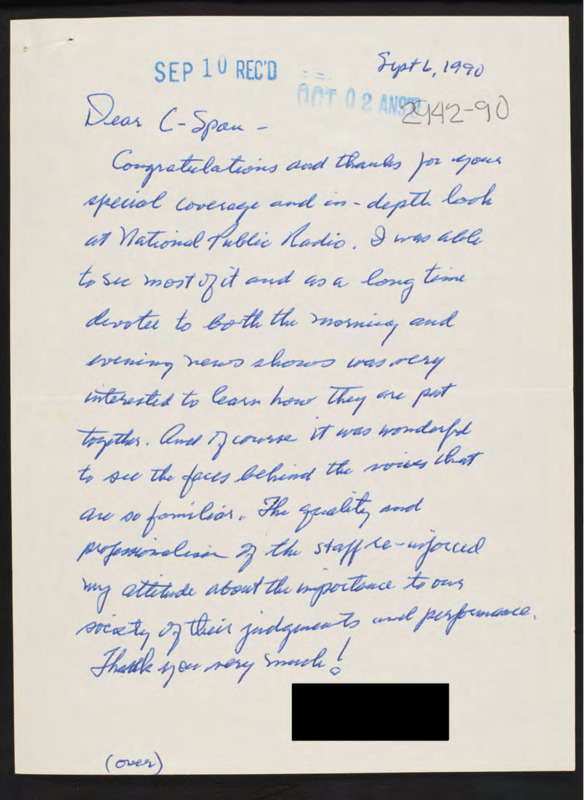 SEP 10 REC'D
Sept 6, 1990
OCT 02 ANS'D
2942-90
Dear C-Span -
Congratulations and thanks for your
special coverage and in-depth look
at National Public Radio. I was able
to see most of it and as a long time
devotee to both the morning and
evening news shows was very
interested to learn how they are put
together. And of course it was wonderful
to see the faces behind the voices that
are so familiar. The quality and
professionalism of the staff re-inforced
my attitude about the importance to our
society of their judgements and performance.
Thank you very much!
(over)